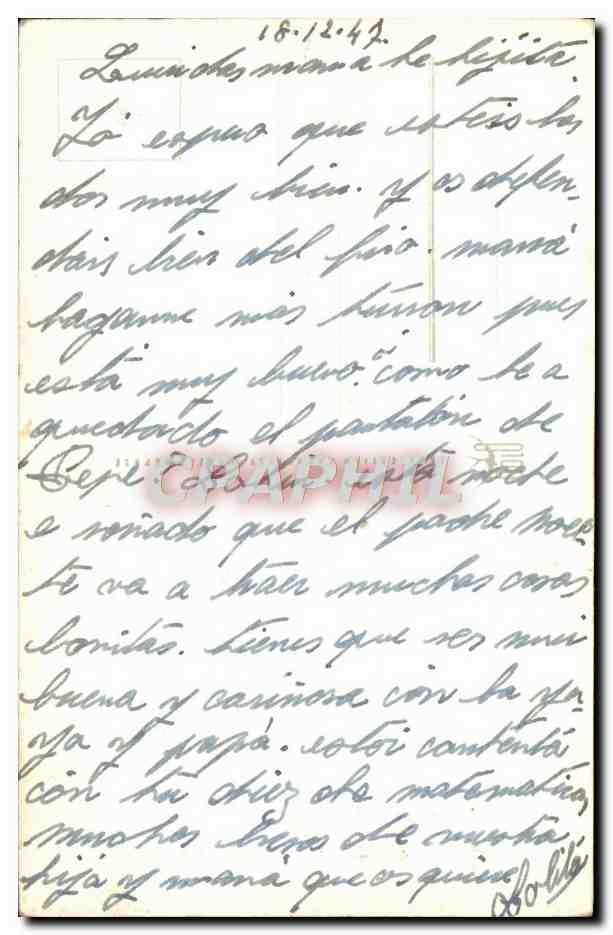 18.12.47.
mamá he hijita.
Yo espero que esteis las
dos muy bien. y os defen-
dais bien del frio. mamá
haganme mas turron pues
está muy bueno. como he a
quedado el pantalón de
Pepe? esta noche
e soñado que el padre Noe
te va a traer muchas cosas
bonitas. tienes que ser mui
buena y cariñosa con la ya-
ya y papá. estoi contenta
con tu diez de matematicas
muchos besos de nuestra
hija y mamá que os quiere
Lolita
CPAPHIL